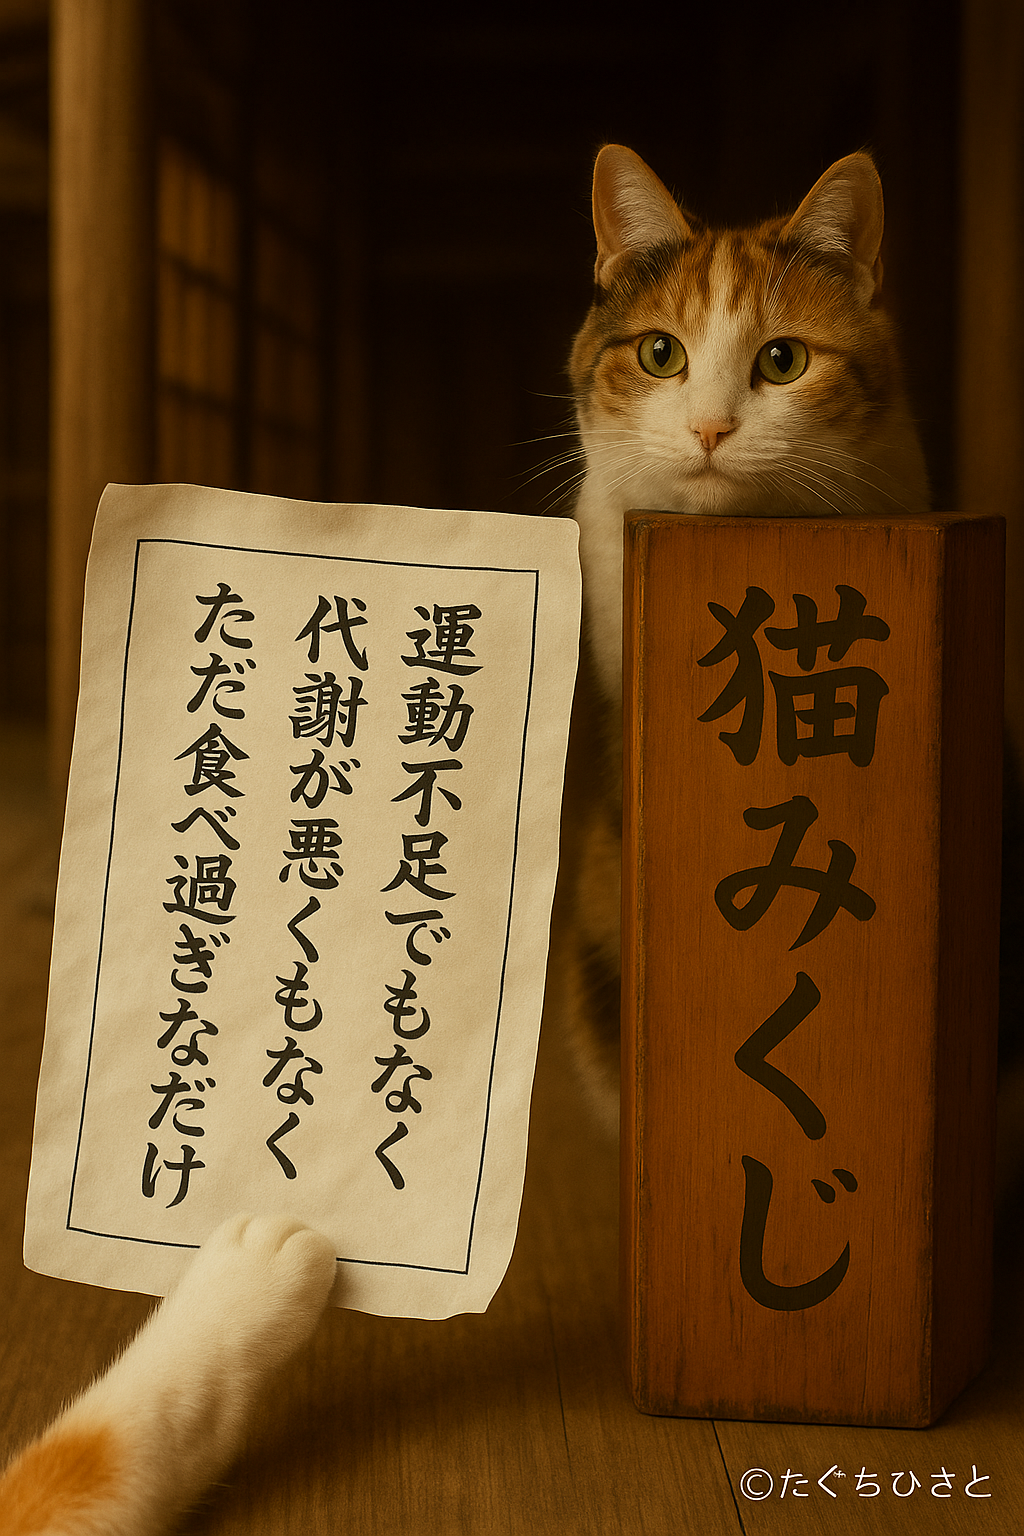 運動不足でもなく
代謝が悪くもなく
ただ食べ過ぎなだけ
猫みくじ
©たぐちひさと